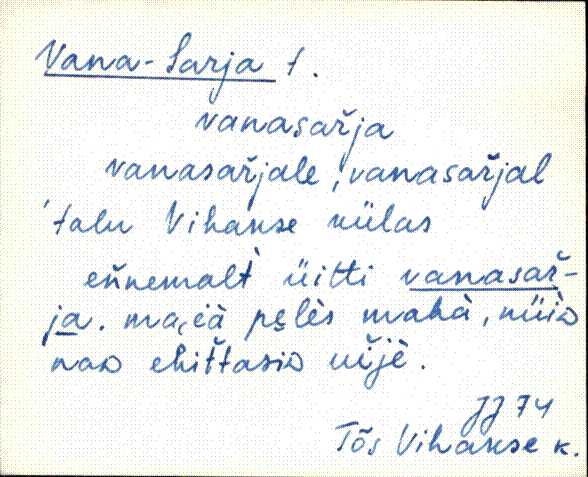 Vana-Sarja t.
vanasařja
vanasařjale, vanasařjal
'talu Vihakse külas
eňnemalt̀ üitti vanasař-
ja. ma,eà pelès mahà, nüid
nad ehiťtasid uije.
JJ 74
Tõs Vihakse k.